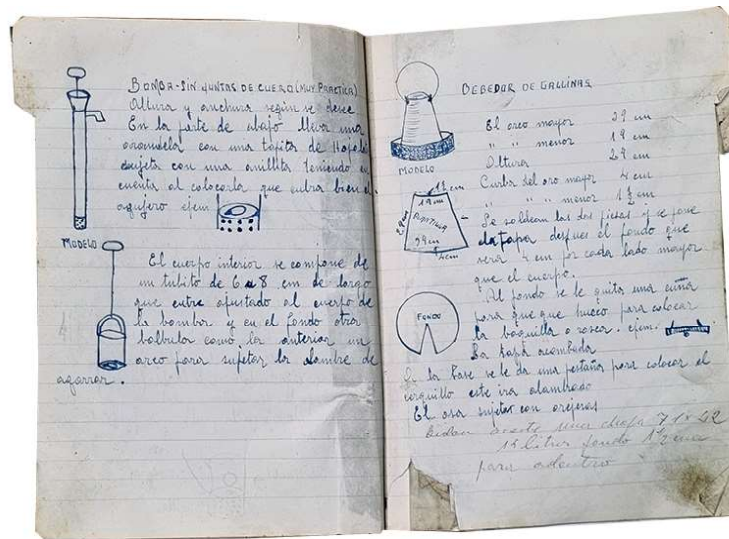 BOMBA-SIN JUNTAS DE CUERO (MUY PRACTICA)
Altura y anchura según se desee
En la parte de abajo lleva una
arandela con una tapita de
sujeta con una anillita teniendo en
cuenta al colocarla que cubra bien el
agujero ejem
MODELO
El cuerpo interior se compone de
un tubito de 6 u 8 cm de largo
que entre ajustado al cuerpo de
la bomba y en el fondo otra
balbula como la anterior un
arco para sujetar la alambre de
agarrar.
BEBEDOR DE GALLINAS
El arco mayor 29 cm
" " menor 19 cm
Altura 29 cm
Curba del aro mayor 4 cm
" " " menor 1 1/2 cm
MODELO
19 cm
PLANTILLA
29 cm
4 cm
Se soldean las dos piezas y se pone
la tapa despues el fondo que
sera 4 cm por cada lado mayor
que el cuerpo.
Al fondo se le quita una cuña
para que que hueco para colocar
la boquilla o rosca. ejem.
FONDO
La tapa acombada
En la base se le da una pestaña para colocar el
cerquillo este ira alambrado
El asa sujetar con orejeras
bidon aceite una chapa 71 x 42
15 litros fondo
para adentro